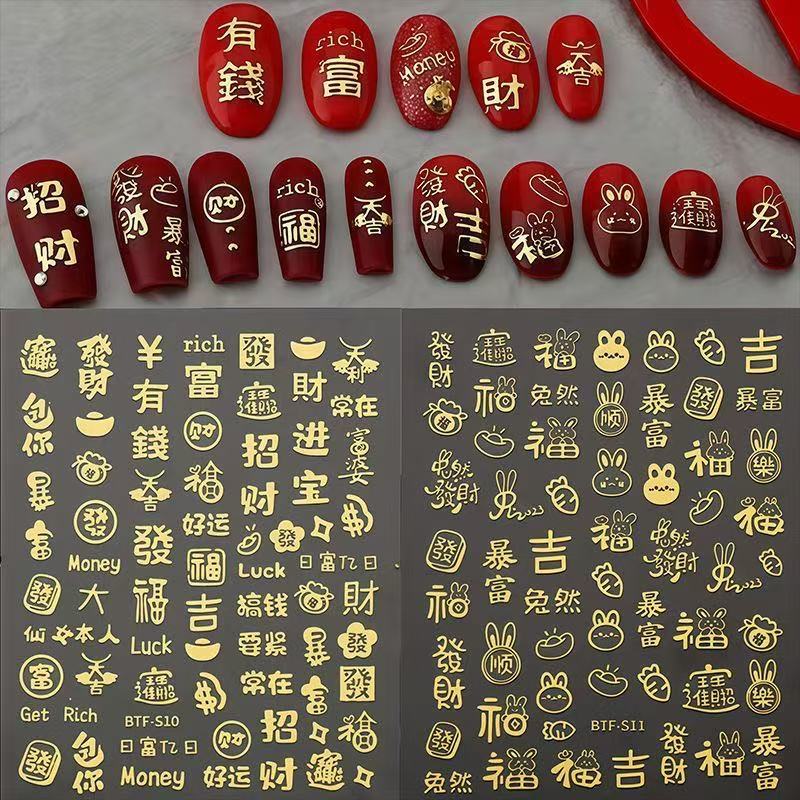 有錢
rich
富
Money
財
大吉
招财
發財
暴富
财
rich
福
大吉
發財
福
招財進寶
2023
發財
¥
rich
發
大利
有錢
富
招財進寶
財
常在
包你
财
招财
进宝
富婆
暴富
大吉
福
發
發福
好运
發
Money
福
Luck
日富亿日
發
大
吉
搞钱
財
仙女本人
Luck
要紧
暴富
發
富
大吉
招財進寶
常在
發
Get Rich
BTF-S10
财
招财
福
發
包你
日富亿日
Money
好运
發財
招財進寶
福
吉
福
兔然
顺
暴富
發
暴富
福
福
樂
兔然發財
2023
福
福
發
暴富
吉
福
兔然發財
2023
福
兔然
暴富
福
發財
顺
招財進寶
樂
福
BTF-S11
發財
暴富
發
兔然
福
福
吉
福